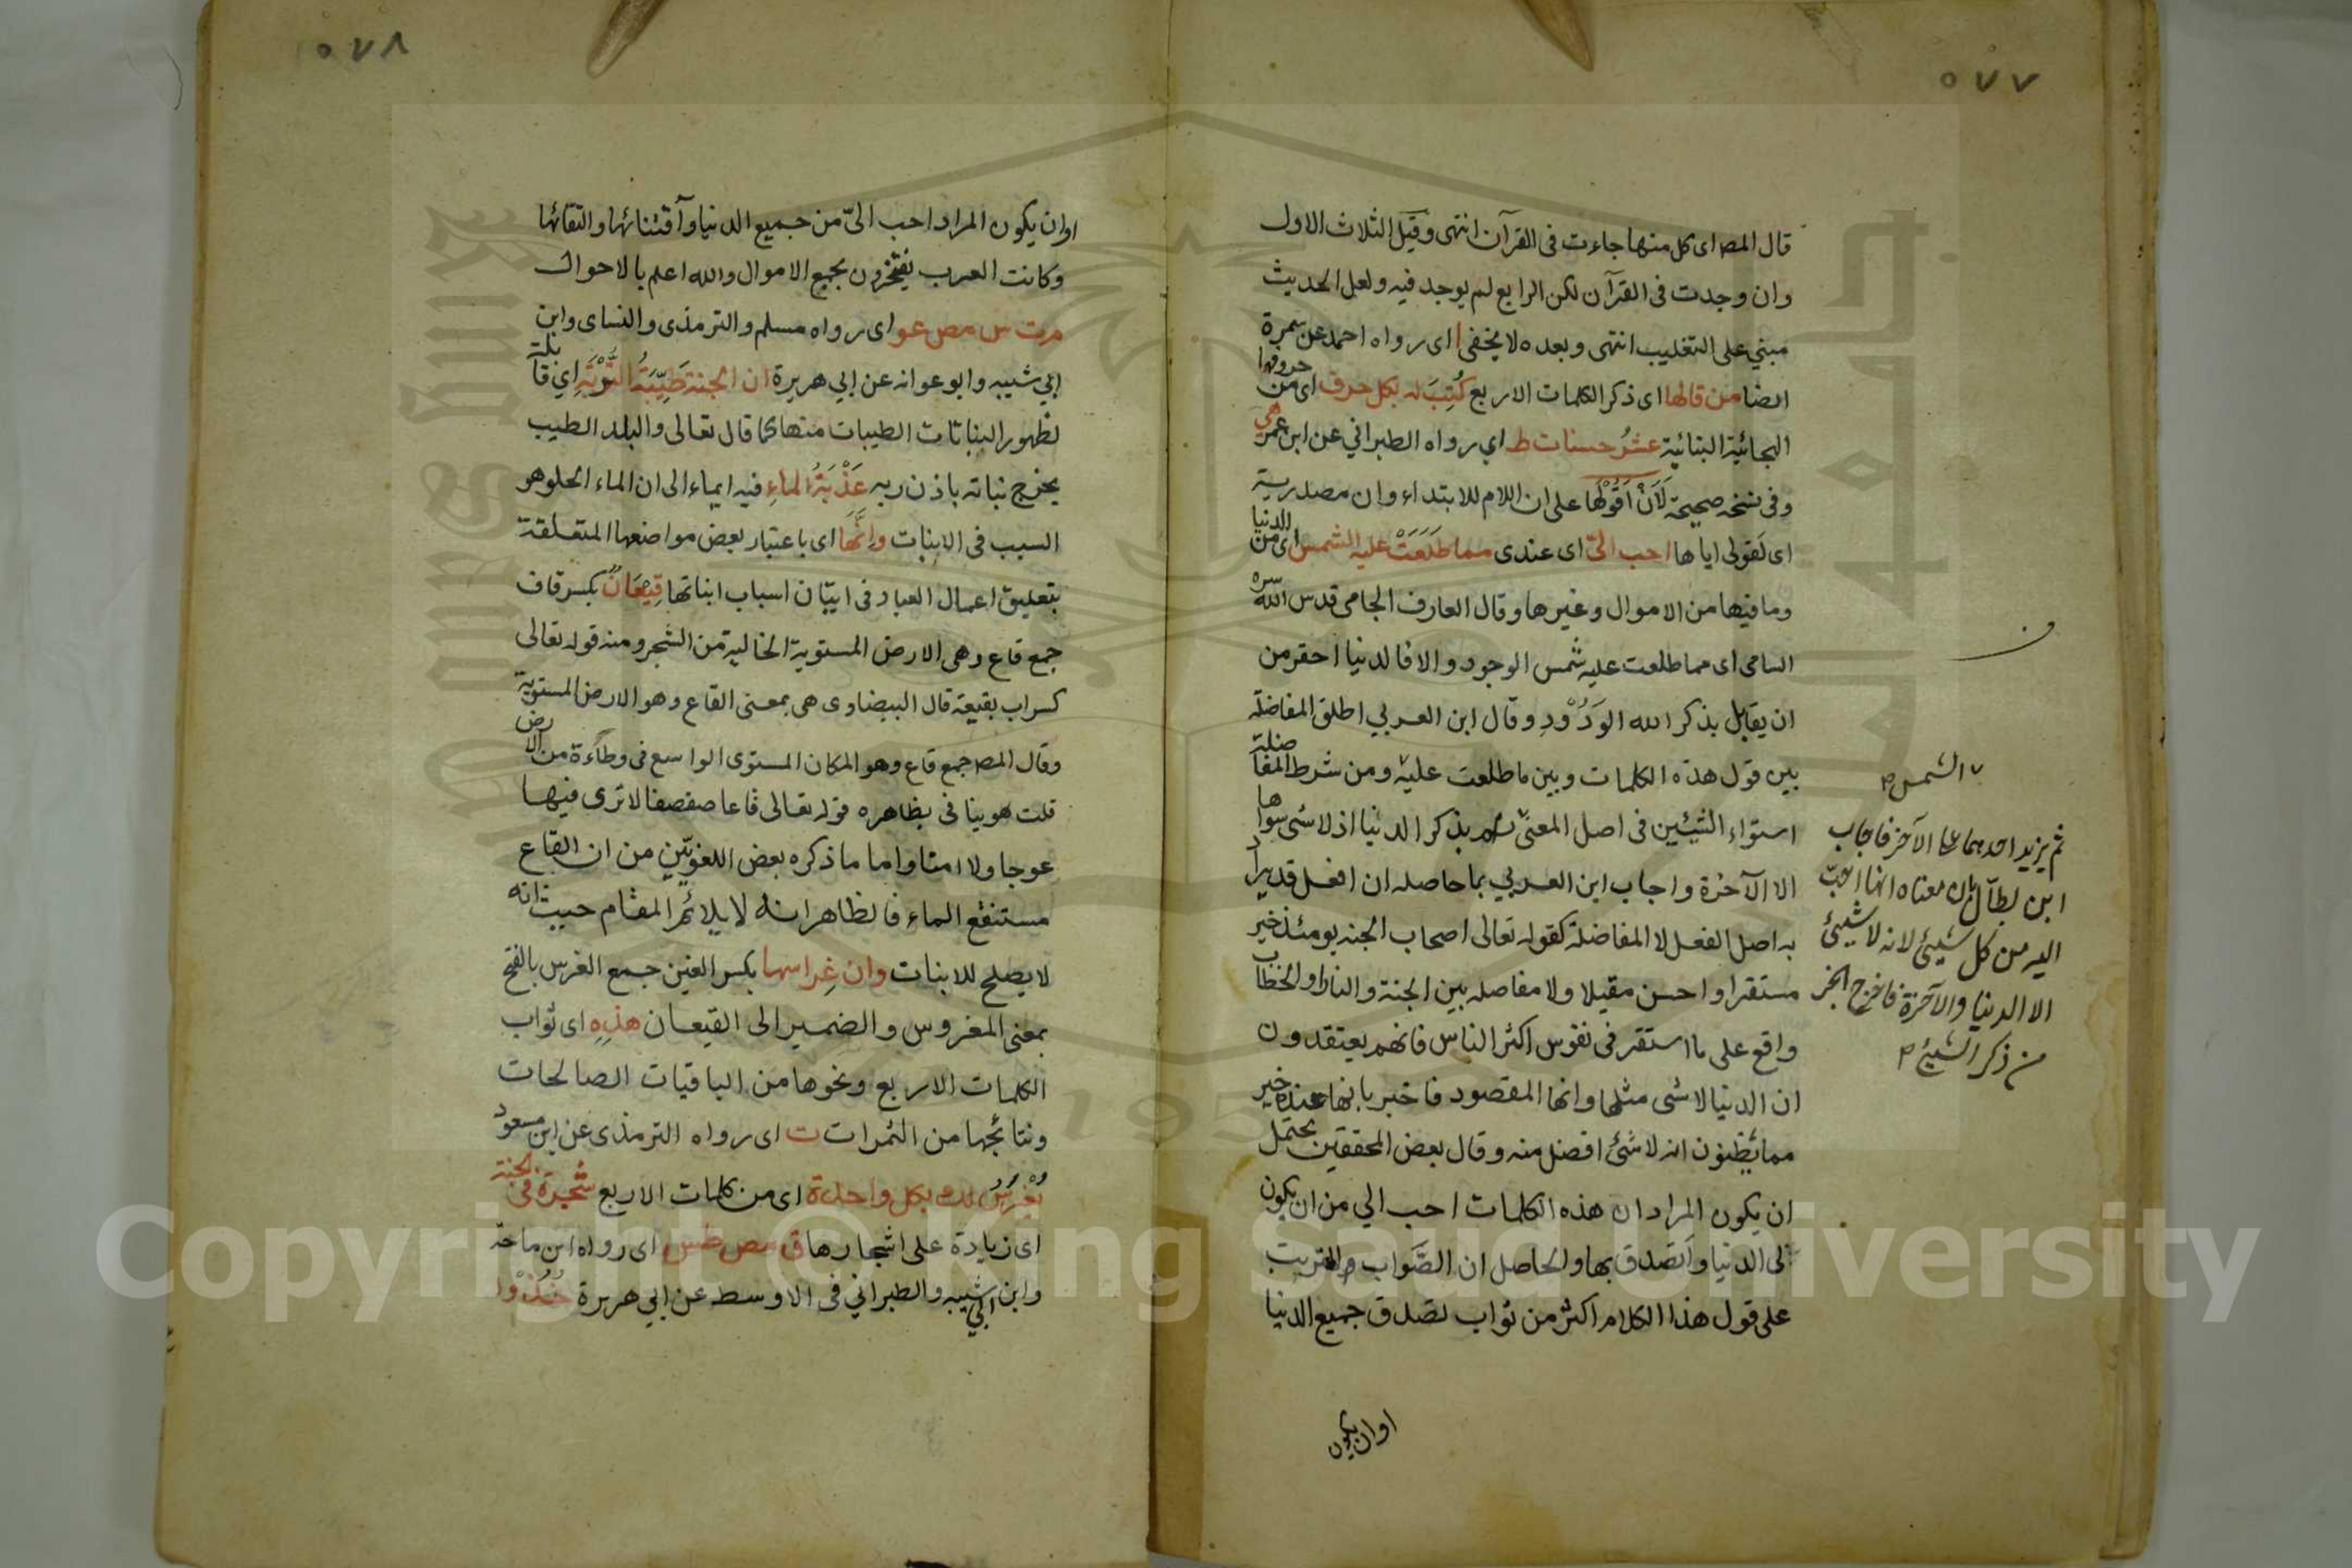 ٥٧٧
قال المص اى كل منها جاءت فى القرآن انتهى وقيل الثلاث الاول
وان وجدت فى القرآن لكن الرابع لم يوجد فيه ولعل الحديث
مبني على التغليب انتهى وبعده لا يخفى ا اى رواه احمد عن سمرة
ايضا من قالها اى ذكر الكلمات الاربع كُتِبَ له بكل حرف اى من حروفها
الهجائية البنائية عشرُ حسنات ط اي رواه الطبراني عن ابن عمر
وفى نسخة صحيحة لَأَنْ اَقُولها على ان اللام للابتداء وان مصدرية
اى لقولى اياها احب الىّ اى عندى مما طَلَعَتْ عليه الشمس اى من الدنيا
وما فيها من الاموال وغيرها وقال العارف الجامى قدس الله سره
السامى اى مما طلعت عليه شمس الوجود والا فالدنيا احقر من
ان يقابل بذكر الله الوَدُوْدِ وقال ابن العربي اطلق المفاضلة
بين قول هذه الكلمات وبين ما طلعت عليه ومن شرط المفاضلة
استواء الشيئين فى اصل المعنى بذكر الدنيا اذ لا شى سواها
الا الآخرة واجاب ابن العربي بما حاصله ان افعل قد يراد
به اصل الفعل لا المفاضلة كقوله تعالى اصحاب الجنه يومئذ خير
مستقرا واحسن مقيلا ولا مفاضله بين الجنة والنار او الخطاب
واقع على ما استقر فى نفوس اكثر الناس فانهم يعتقدون
ان الدنيا لا شى مثلها وانها المقصود فاخبر بانها عنده خير
مما يظنون انه لا شئ افضل منه وقال بعض المحققين يحتمل
ان يكون المراد ان هذه الكلمات احب الي من ان يكون
لى الدنيا واتصدق بها والحاصل ان الثواب المترتب
على قول هذا الكلام اكثر من ثواب تصدق جميع الدنيا
او ان يكون
الشمس
ثم يزيد احدهما على الآخر فاجاب
ابن بطال بان معناه انها احب
اليه من كل شيئ لانه لا شيئ
الا الدنيا والآخرة فاخرج الخبر
من ذكر الشيئ
٥٧٨
او ان يكون المراد احب الىّ من جميع الدنيا واقتنائها والتقائها
وكانت العرب يفتخرون بجمع الاموال والله اعلم بالاحوال
م ت س مص عو اى رواه مسلم والترمذى والنساى وابن
ابي شيبه وابو عوانه عن ابي هريرة ان الجنة طَيِّبَةُ التُّرْبَةِ اي قابلة
لظهور النباتات الطيبات منها كما قال تعالى والبلد الطيب
يخرج نباته باذن ربه عَذْبَةُ الماءِ فيه ايماء الى ان الماء الحلو هو
السبب فى الانبات وانَّهَا اى باعتبار بعض مواضعها المتعلقة
بتعليق اعمال العباد فى اتيان اسباب انباتها قِيْعَانٌ بكسر قاف
جمع قاع وهى الارض المستوية الخالية من الشجر ومنه قوله تعالى
كسراب بقيعة قال البيضاوى هى بمعنى القاع وهو الارض المستوية
وقال المص جمع قاع وهو المكان المستوى الواسع فى وطأة من الارض
قلت هو ينافى بظاهره قوله تعالى قاعا صفصفا لا ترى فيها
عوجا ولا امتا واما ما ذكره بعض اللغويّين من ان القاع
مستنقع الماء فالظاهر انه لا يلائم المقام حيث انه
لا يصلح للانبات وان غِراسها بكسر الغين جمع الغرس بالفتح
بمعنى المغروس والضمير الى القيعان هذِهِ اى ثواب
الكلمات الاربع ونحوها من الباقيات الصالحات
ونتائجها من الثمرات ت اى رواه الترمذى عن ابن مسعود
يُغْرَسُ لك بكل واحدة اى من كلمات الاربع شجرة فى الجنة
اى زيادة على اشجارها ق مص طس اى رواه ابن ماجه
وابن ابي شيبه والطبراني فى الاوسط عن ابي هريرة خُذُوْا
Copyright © King Saud University